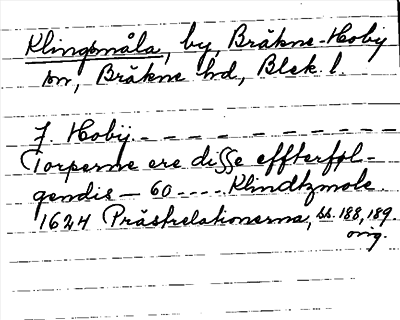 Klingsmåla, by, Bräkne-Hoby
sn, Bräkne hd, Blek. l.
J. Hoby. – – – – – – – – –
Torperne ere disse effterføl-
gendis – 60 - - - - Klindtzmole.
1624 Prästrelationerna, ss. 188, 189.
orig.